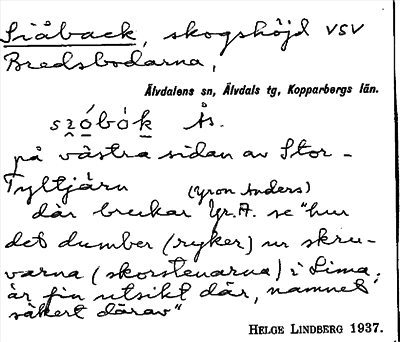 Siåback, skogshöjd VSV
Bredsbodarna,
Älvdalens sn, Älvdals tg, Kopparbergs län.
Ås.
på västra sidan av Stor-
Tyltjärn (Yron Anders)
där brukar Yr. A. se "hur
det dumber (ryker) ur skru-
varna (skorstenarna) i Lima;
är fin utsikt där, namnet
säkert därav"
HELGE LINDBERG 1937.